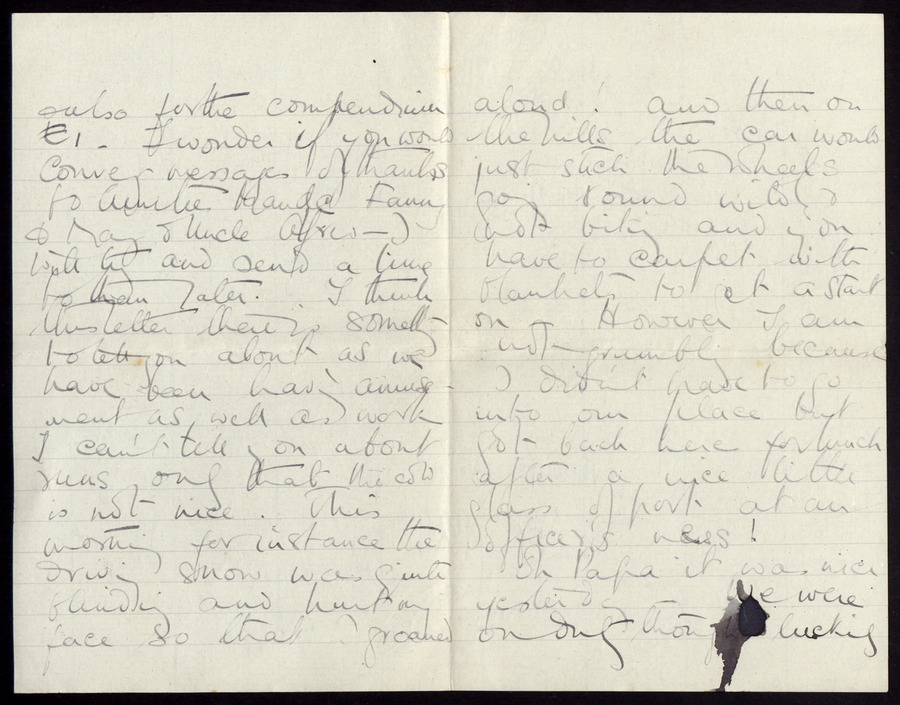 also for the compendium
£1 - I wonder if you would
convey messages of thanks
to Auntie Maud Fanny
& May & Uncle I
will try and send a line
to them later. I think
this letter there is someth-
to tell you about as we
have been havig amuse-
ment as well as work
I can't tell you about
runs only that the cold
is not nice. This
morning for instance the
drivig snow was quite
blinding and hurt my
face so that I groaned
aloud! and then on
the hills the car would
just stick the wheels
goig round wildly &
not bitig and you
have to carpet with
blankets to get a start
on - However I am
not grumblig because
I didn't have to go
into our place but
got back here for lunch
after a nice little
glass of port at an
officer's mess!
Oh Papa it was nice
yesterday We were
on duty though luckily